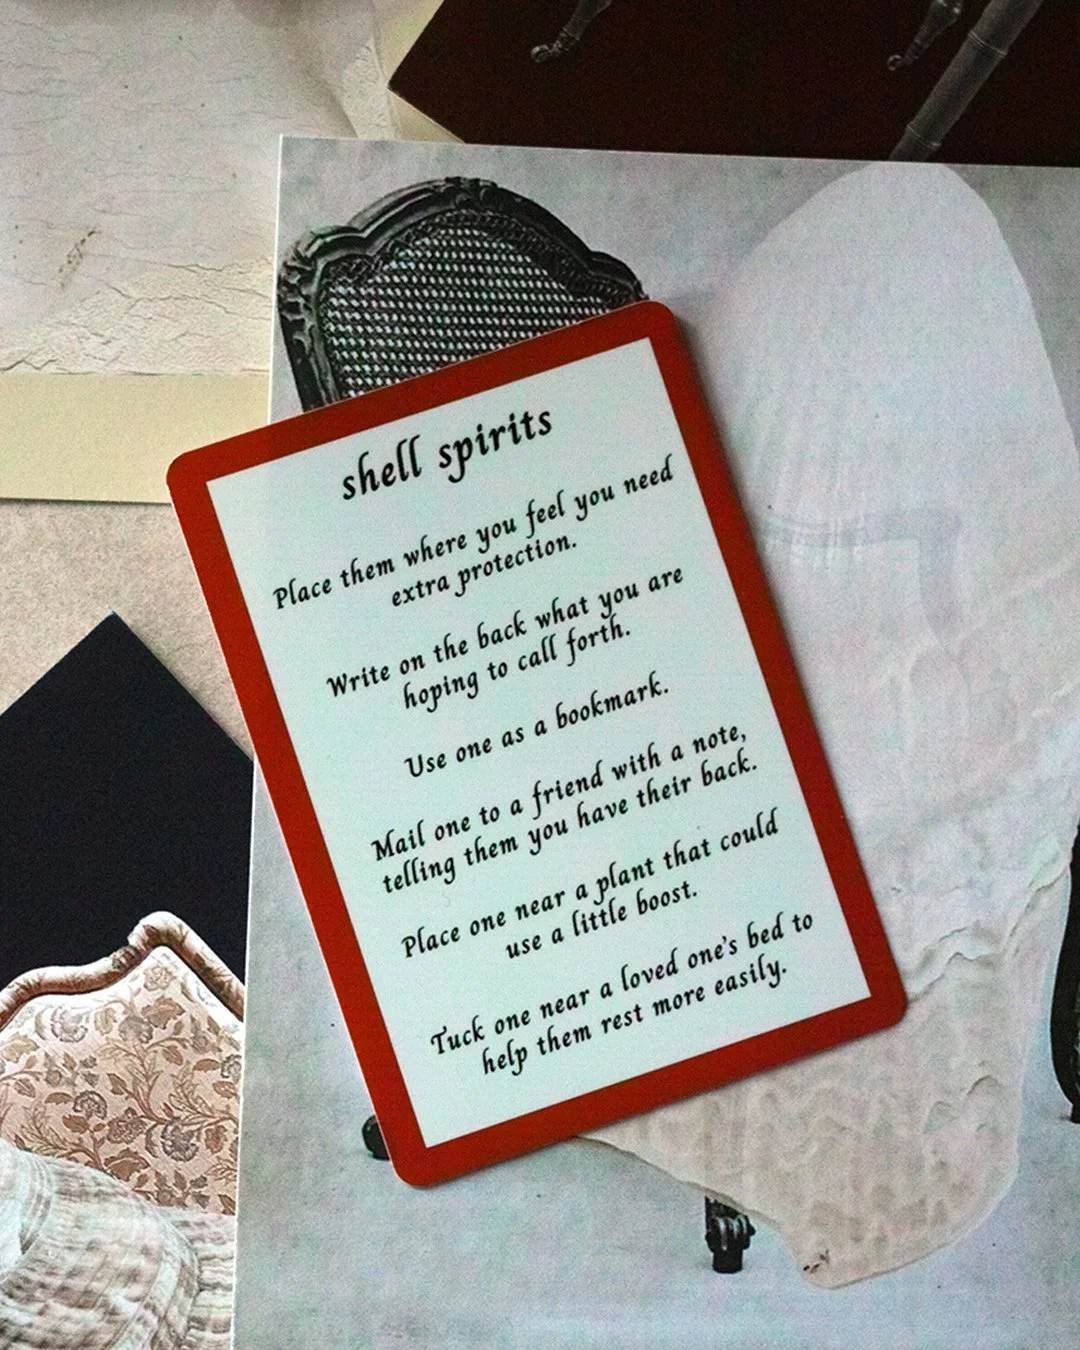 shell spirits
Place them where you feel you need
extra protection.
Write on the back what you are
hoping to call forth.
Use one as a bookmark.
Mail one to a friend with a note,
telling them you have their back.
Place one near a plant that could
use a little boost.
Tuck one near a loved one's bed to
help them rest more easily.